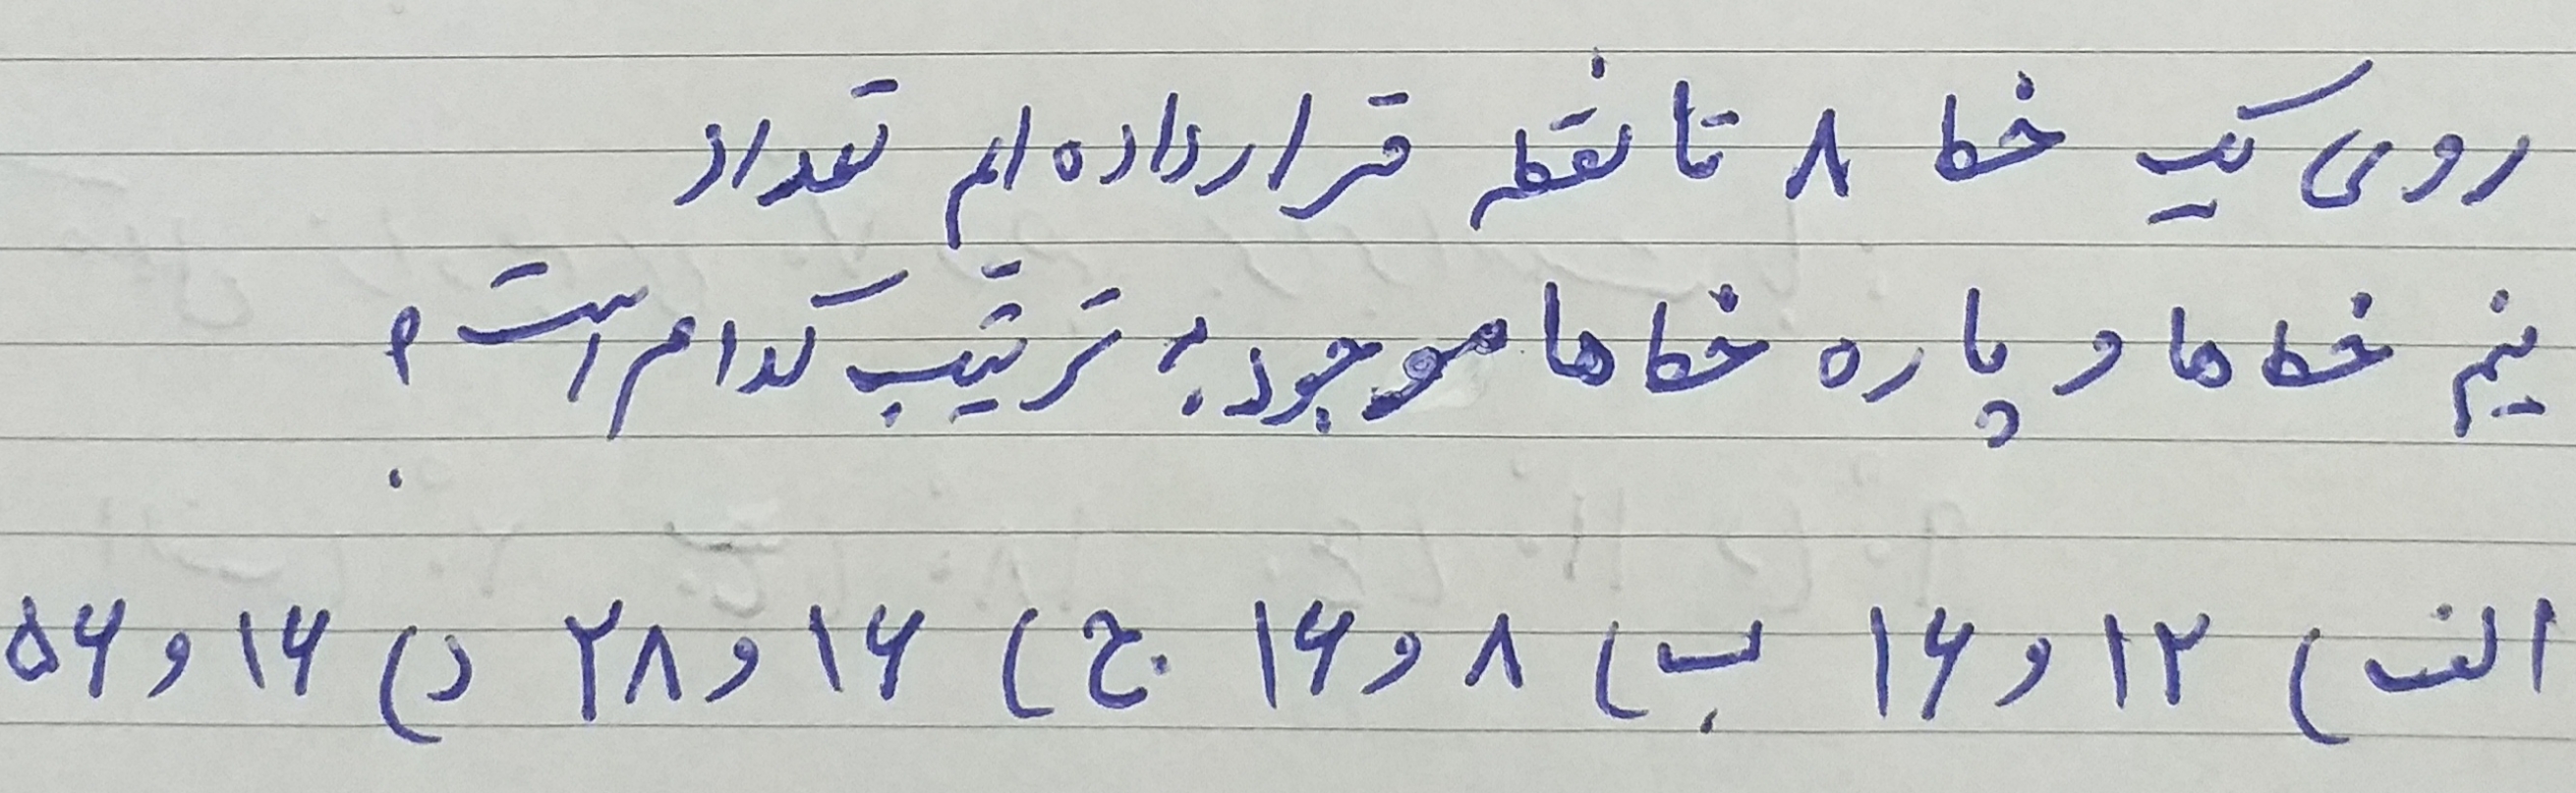 روی یک خط ۸ تا نقطه قرار داده ام تعداد
نیم خط ها و پاره خط ها موجود به ترتیب کدام است؟
الف) ۱۲ و ۱۶ ب) ۸ و ۱۶ ج) ۱۶ و ۲۸ د) ۱۶ و ۵۶